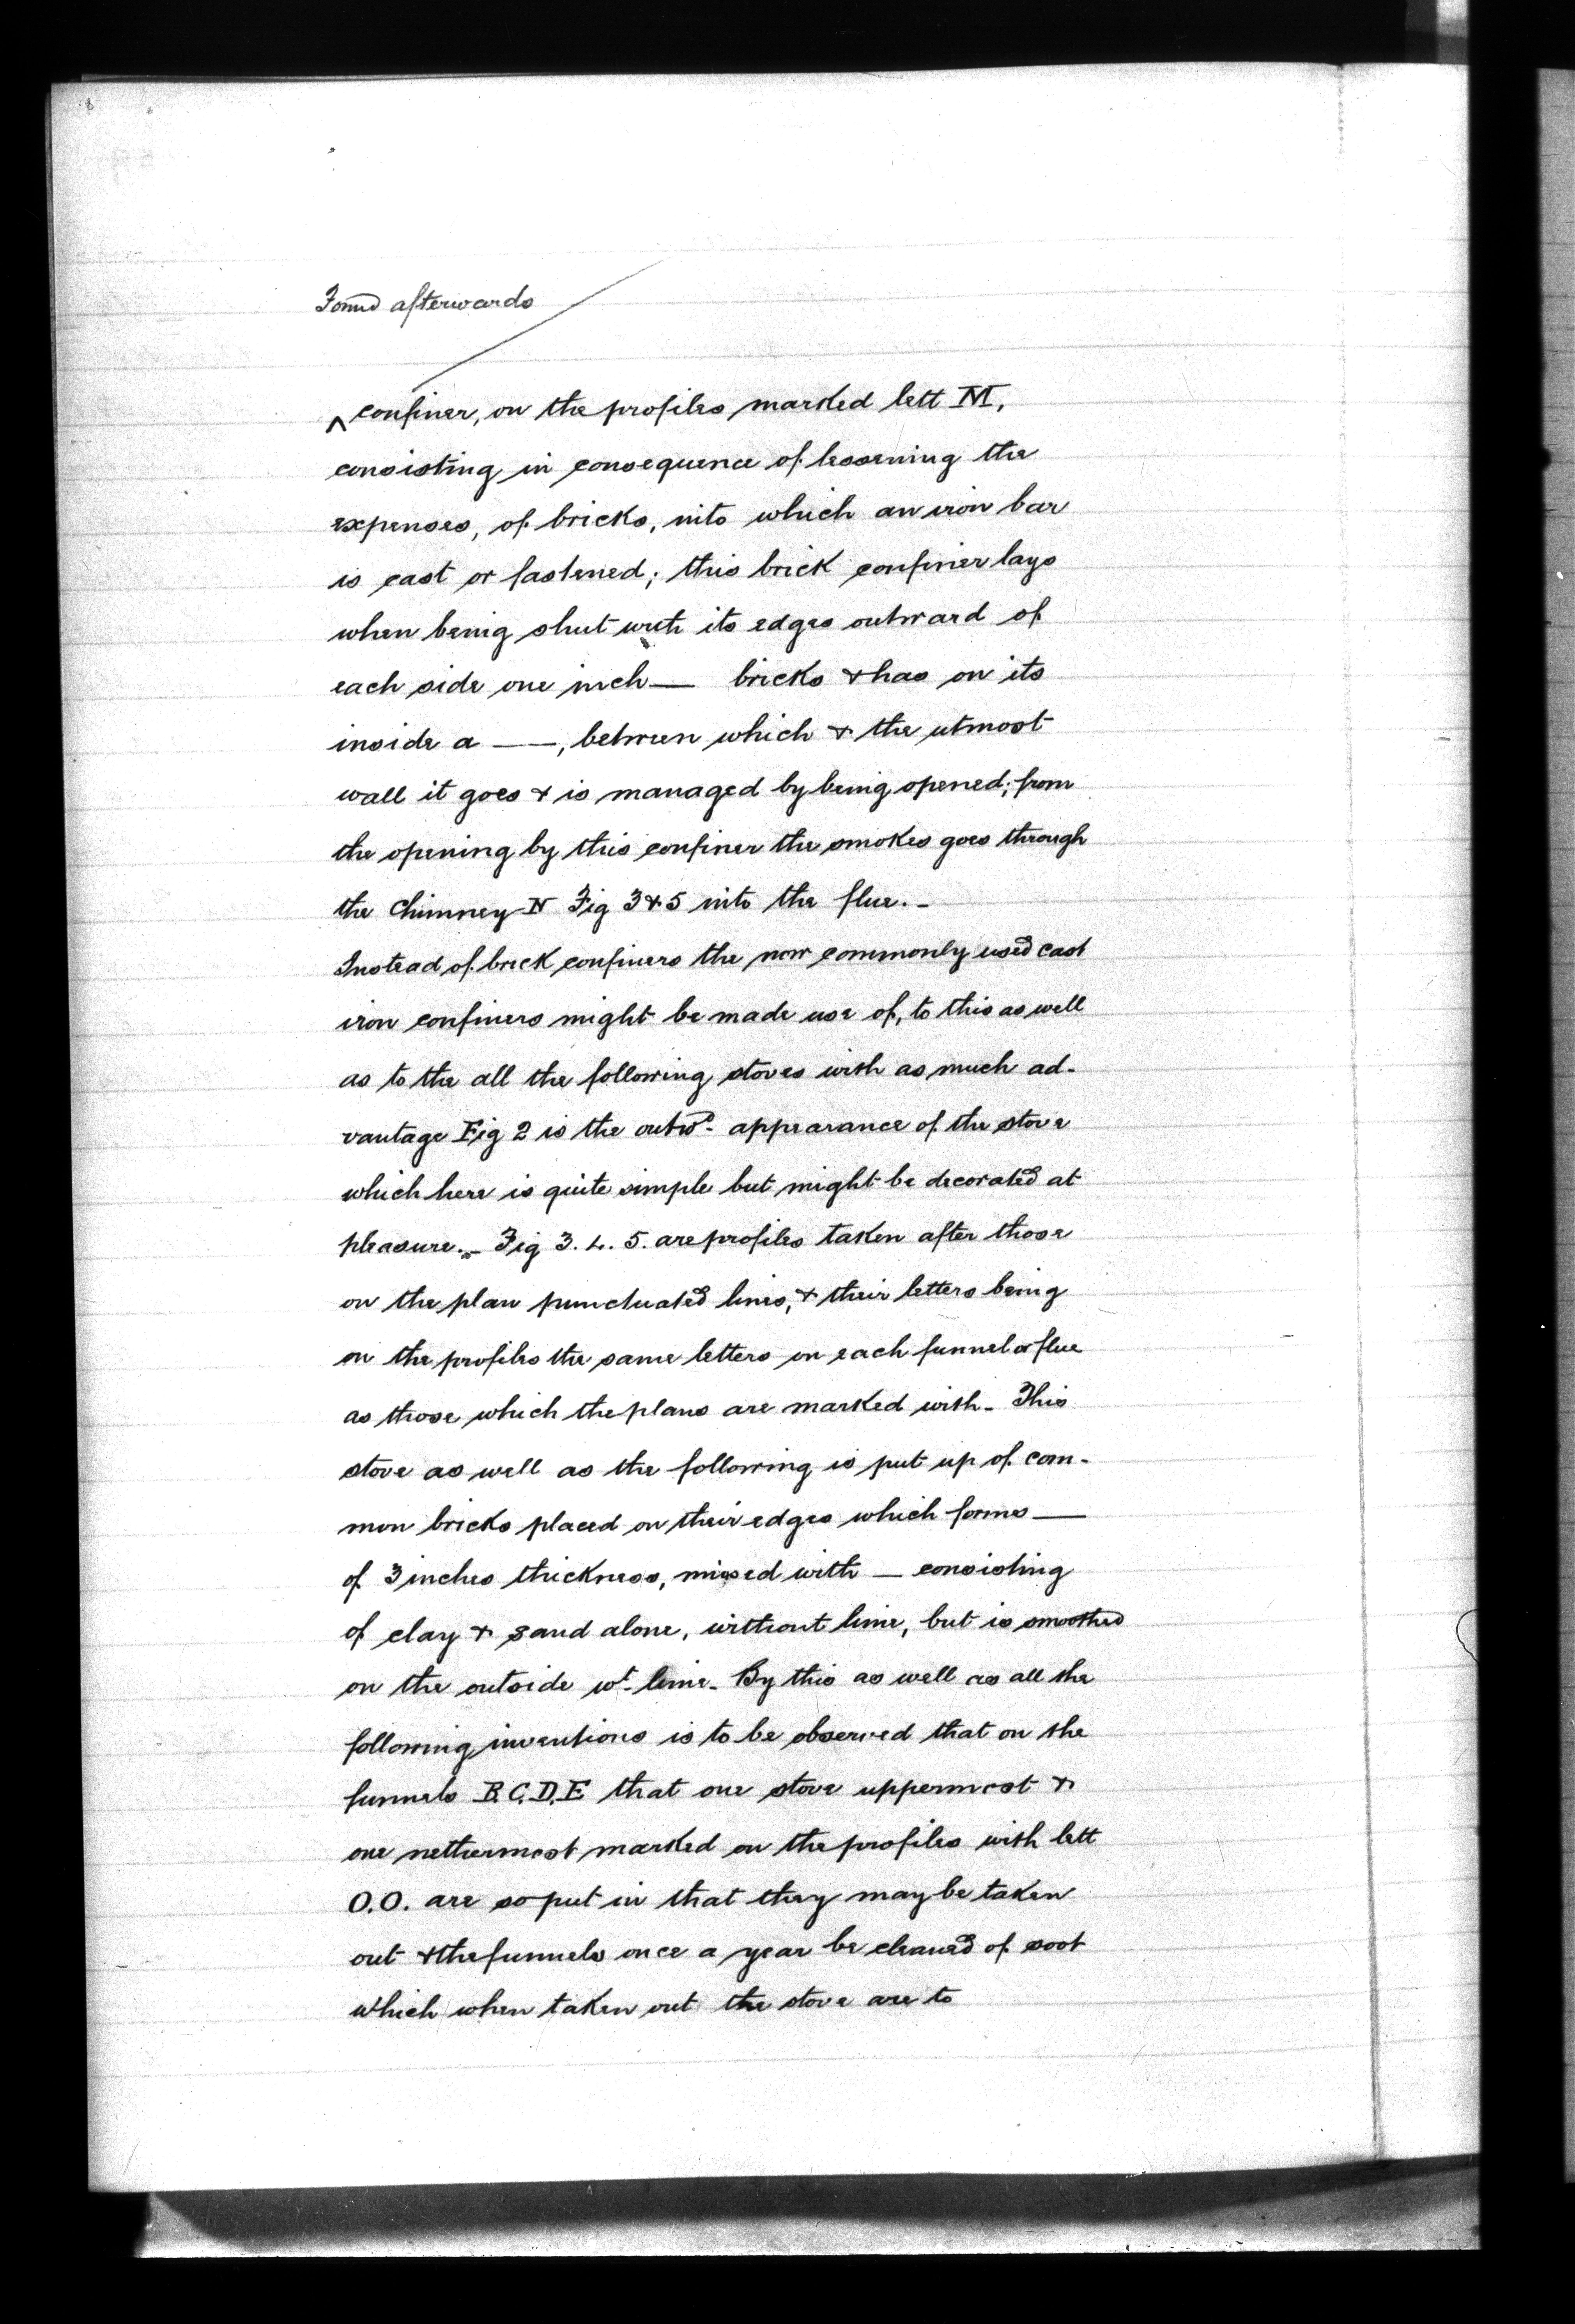 Found afterwards
^ confiner, on the profiles marked lett M,
consisting in consequence of lessening the
expenses, of bricks, into which an iron bar
is cast or fastened; this brick confiner lays
when being shut with its edges outward of
each side one inch — bricks & has on its
inside a — —, between which & the utmost
wall it goes & is managed by being opened; from
the opening by this confiner the smokes goes through
the Chimney N Fig 3 & 5 into the flue. -
Instead of brick confiners the now commonly used cast
iron confiners might be made use of, to this as well
as to the all the following stoves with as much ad-
vantage Fig 2 is the outwd. appearance of the stove
which here is quite simple but might be decorated at
pleasure. - Fig 3. 4. 5. are profiles taken after those
on the plan punctuated lines, & their letters being
on the profiles the same letters on each funnel or flue
as those which the plans are marked with - This
stove as well as the following is put up of com-
mon bricks placed on their edges which forms —
of 3 inches thickness, mixed with — consisting
of clay & sand alone, without lime, but is smoothed
on the outside wt. lime - By this as well as all the
following inventions is to be observed that on the
funnels B. C. D. E that one stove uppermost &
one nethermost marked on the profiles with lett
O. O. are so put in that they may be taken
out & the funnels once a year be cleaned of soot
which when taken out the stove are to